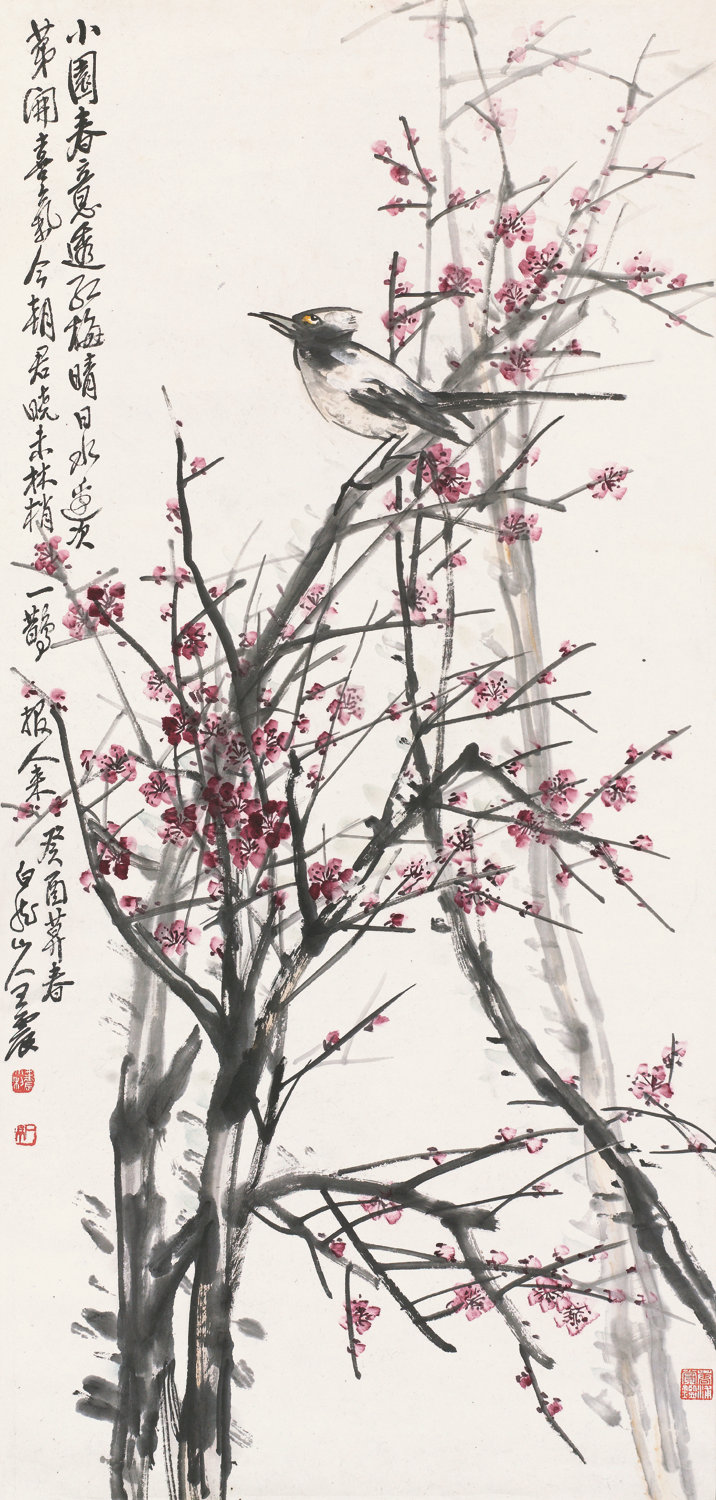 小園春意透紅梅晴日水邊次
第開喜氣今朝君曉未林梢一鵲報人来
癸酉莫春
白龍山人王震